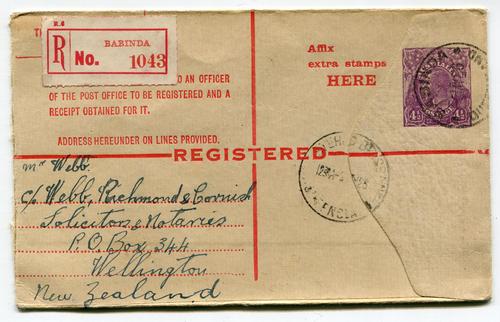 R.6
R No. BABINDA 1043
TH
Affix
extra stamps
HERE
4½
O AN OFFICER
OF THE POST OFFICE TO BE REGISTERED AND A
RECEIPT OBTAINED FOR IT.
ADDRESS HEREUNDER ON LINES PROVIDED.
REGISTERED
Mr Webb.
c/o Webb, Richmond & Cornish
Solicitors & Notaries
P.O. Box 344
Wellington
New Zealand